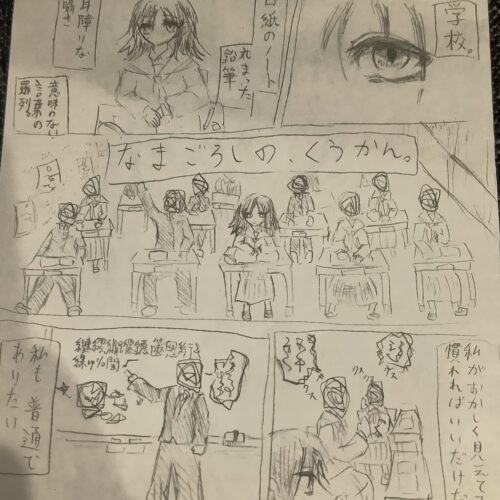 学校。
白紙のノート
丸まった
鉛筆
耳障りな
意味のない
言葉の
羅列。
なまごろしの、くうかん。
私がおかしく見えて
慣れればいいだけ
クスクス
クスクス
私も普通で
ありたい